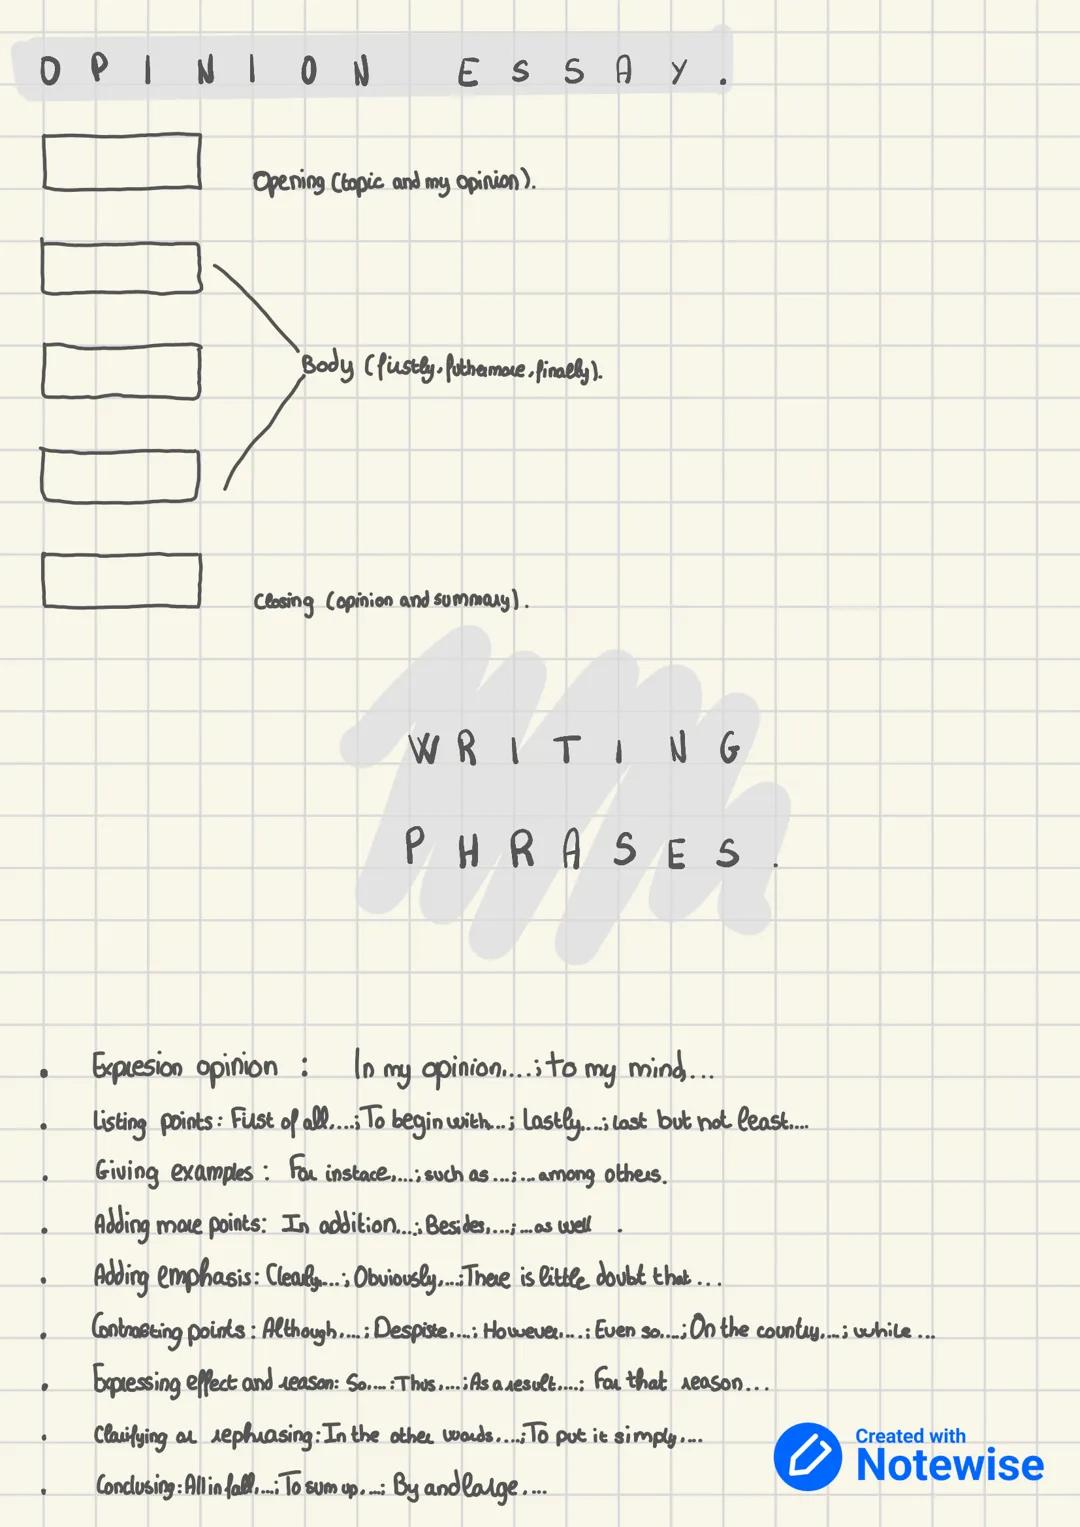 OPINION ESSAY.
Opening (topic and my opinion).
Body (firstly, futhermore, finally).
Closing (opinion and summary).
WRITING
PHRASES.
• Expresion opinion : In my opinion,...; to my mind,...
• Listing points: First of all,...; To begin with...; Lastly,...; Last but not least,...
• Giving examples : For instace,...; such as ...; ... among others.
• Adding more points: In addition...; Besides,...; ... as well .
• Adding emphasis: Clearly,...; Obviously,...; There is little doubt that ...
• Contrasting points : Although,...; Despiste,...; However,...; Even so,...; On the country,...; while ...
• Expressing effect and reason: So,...; Thus,...; As a result,...; For that reason...
• Clarifying or rephrasing: In the other words,...; To put it simply,...
• Conclusing: All in fall,...; To sum up,...; By and large,...
Created with
Notewise